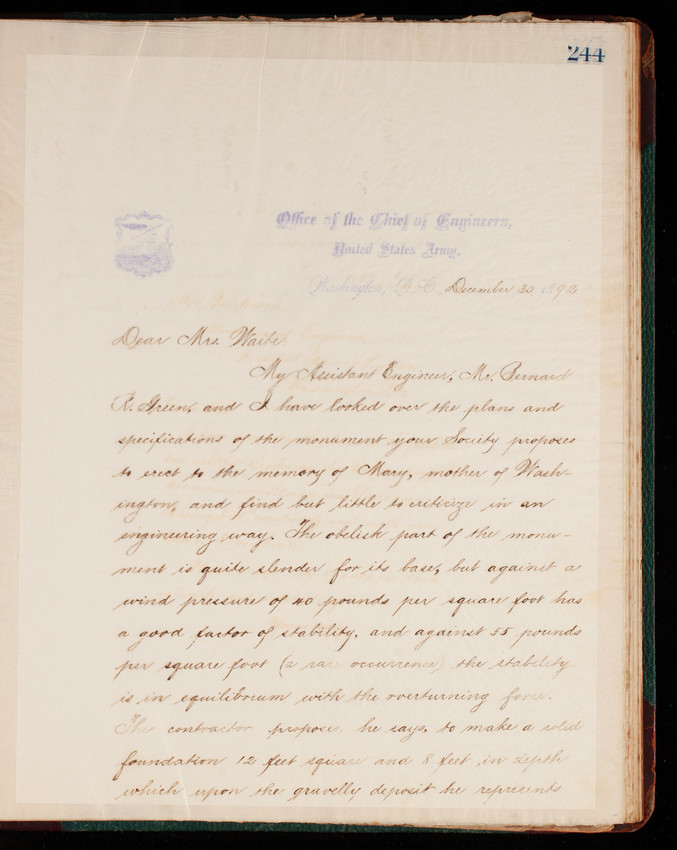 244
Office of the Chief of Engineers,
United States Army,
Washington, D. C., December 30, 1892
Dear Mrs. Waite:
My Assistant Engineer, Mr. Bernard
R. Green, and I have looked over the plans and
specifications of the monument your Society proposes
to erect to the memory of Mary, mother of Wash-
ington, and find but little to criticize in an
engineering way. The obelisk part of the monu-
ment is quite slender for its base, but against a
wind pressure of 40 pounds per square foot has
a good factor of stability, and against 55 pounds
per square foot (a rare occurrence) the stability
is in equilibrium with the overturning force.
The contractor proposes, he says, to make a solid
foundation 12 feet square and 8 feet in depth
which upon the gravelly deposit he represents